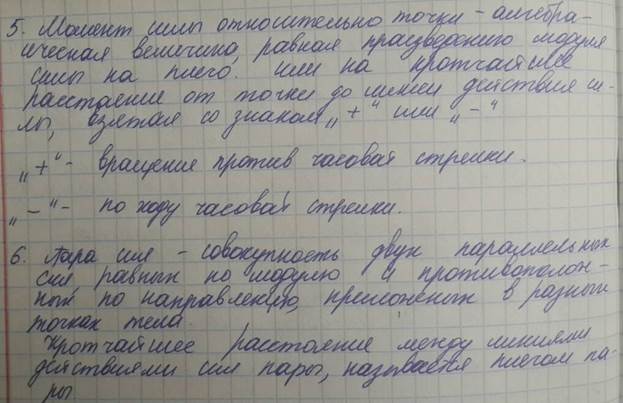 5. Момент силы относительно точки - алгебра-
ическая величина, равная произведению модуля
силы на плечо. или на кротчайшее
расстояние от точки до линии действия си-
лы, взятая со знаком „+“ или „-“
„+“ - вращение против часовой стрелки.
„-“ - по ходу часовой стрелки.
6. Пара сил - совокупность двух параллельных
сил, равных по модулю и противополож-
ных по направлению, приложеных в разных
точках тела.
Кротчайшее расстояние между линиями
действиями сил пары, называется плечом па-
ры